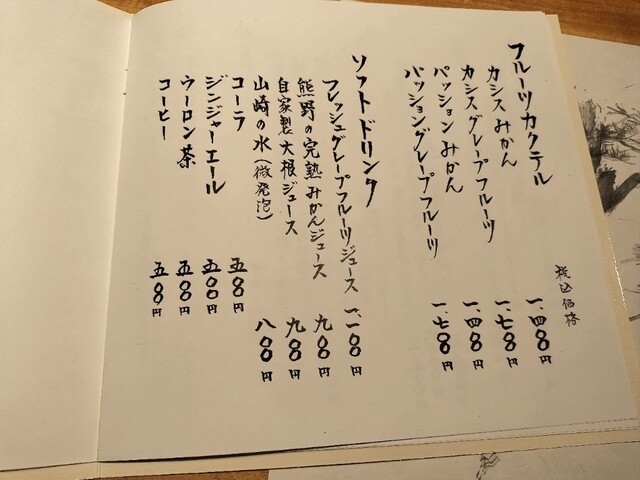 税込価格
フルーツカクテル
カシスみかん 一、四〇〇円
カシスグレープフルーツ 一、七〇〇円
パッションみかん 一、四〇〇円
パッショングレープフルーツ 一、七〇〇円
ソフトドリンク
フレッシュグレープフルーツジュース 一、一〇〇円
熊野の完熟みかんジュース 九〇〇円
自家製大根ジュース 九〇〇円
山崎の水（微発泡） 八〇〇円
コーラ 五〇〇円
ジンジャーエール 五〇〇円
ウーロン茶 五〇〇円
コーヒー 五〇〇円